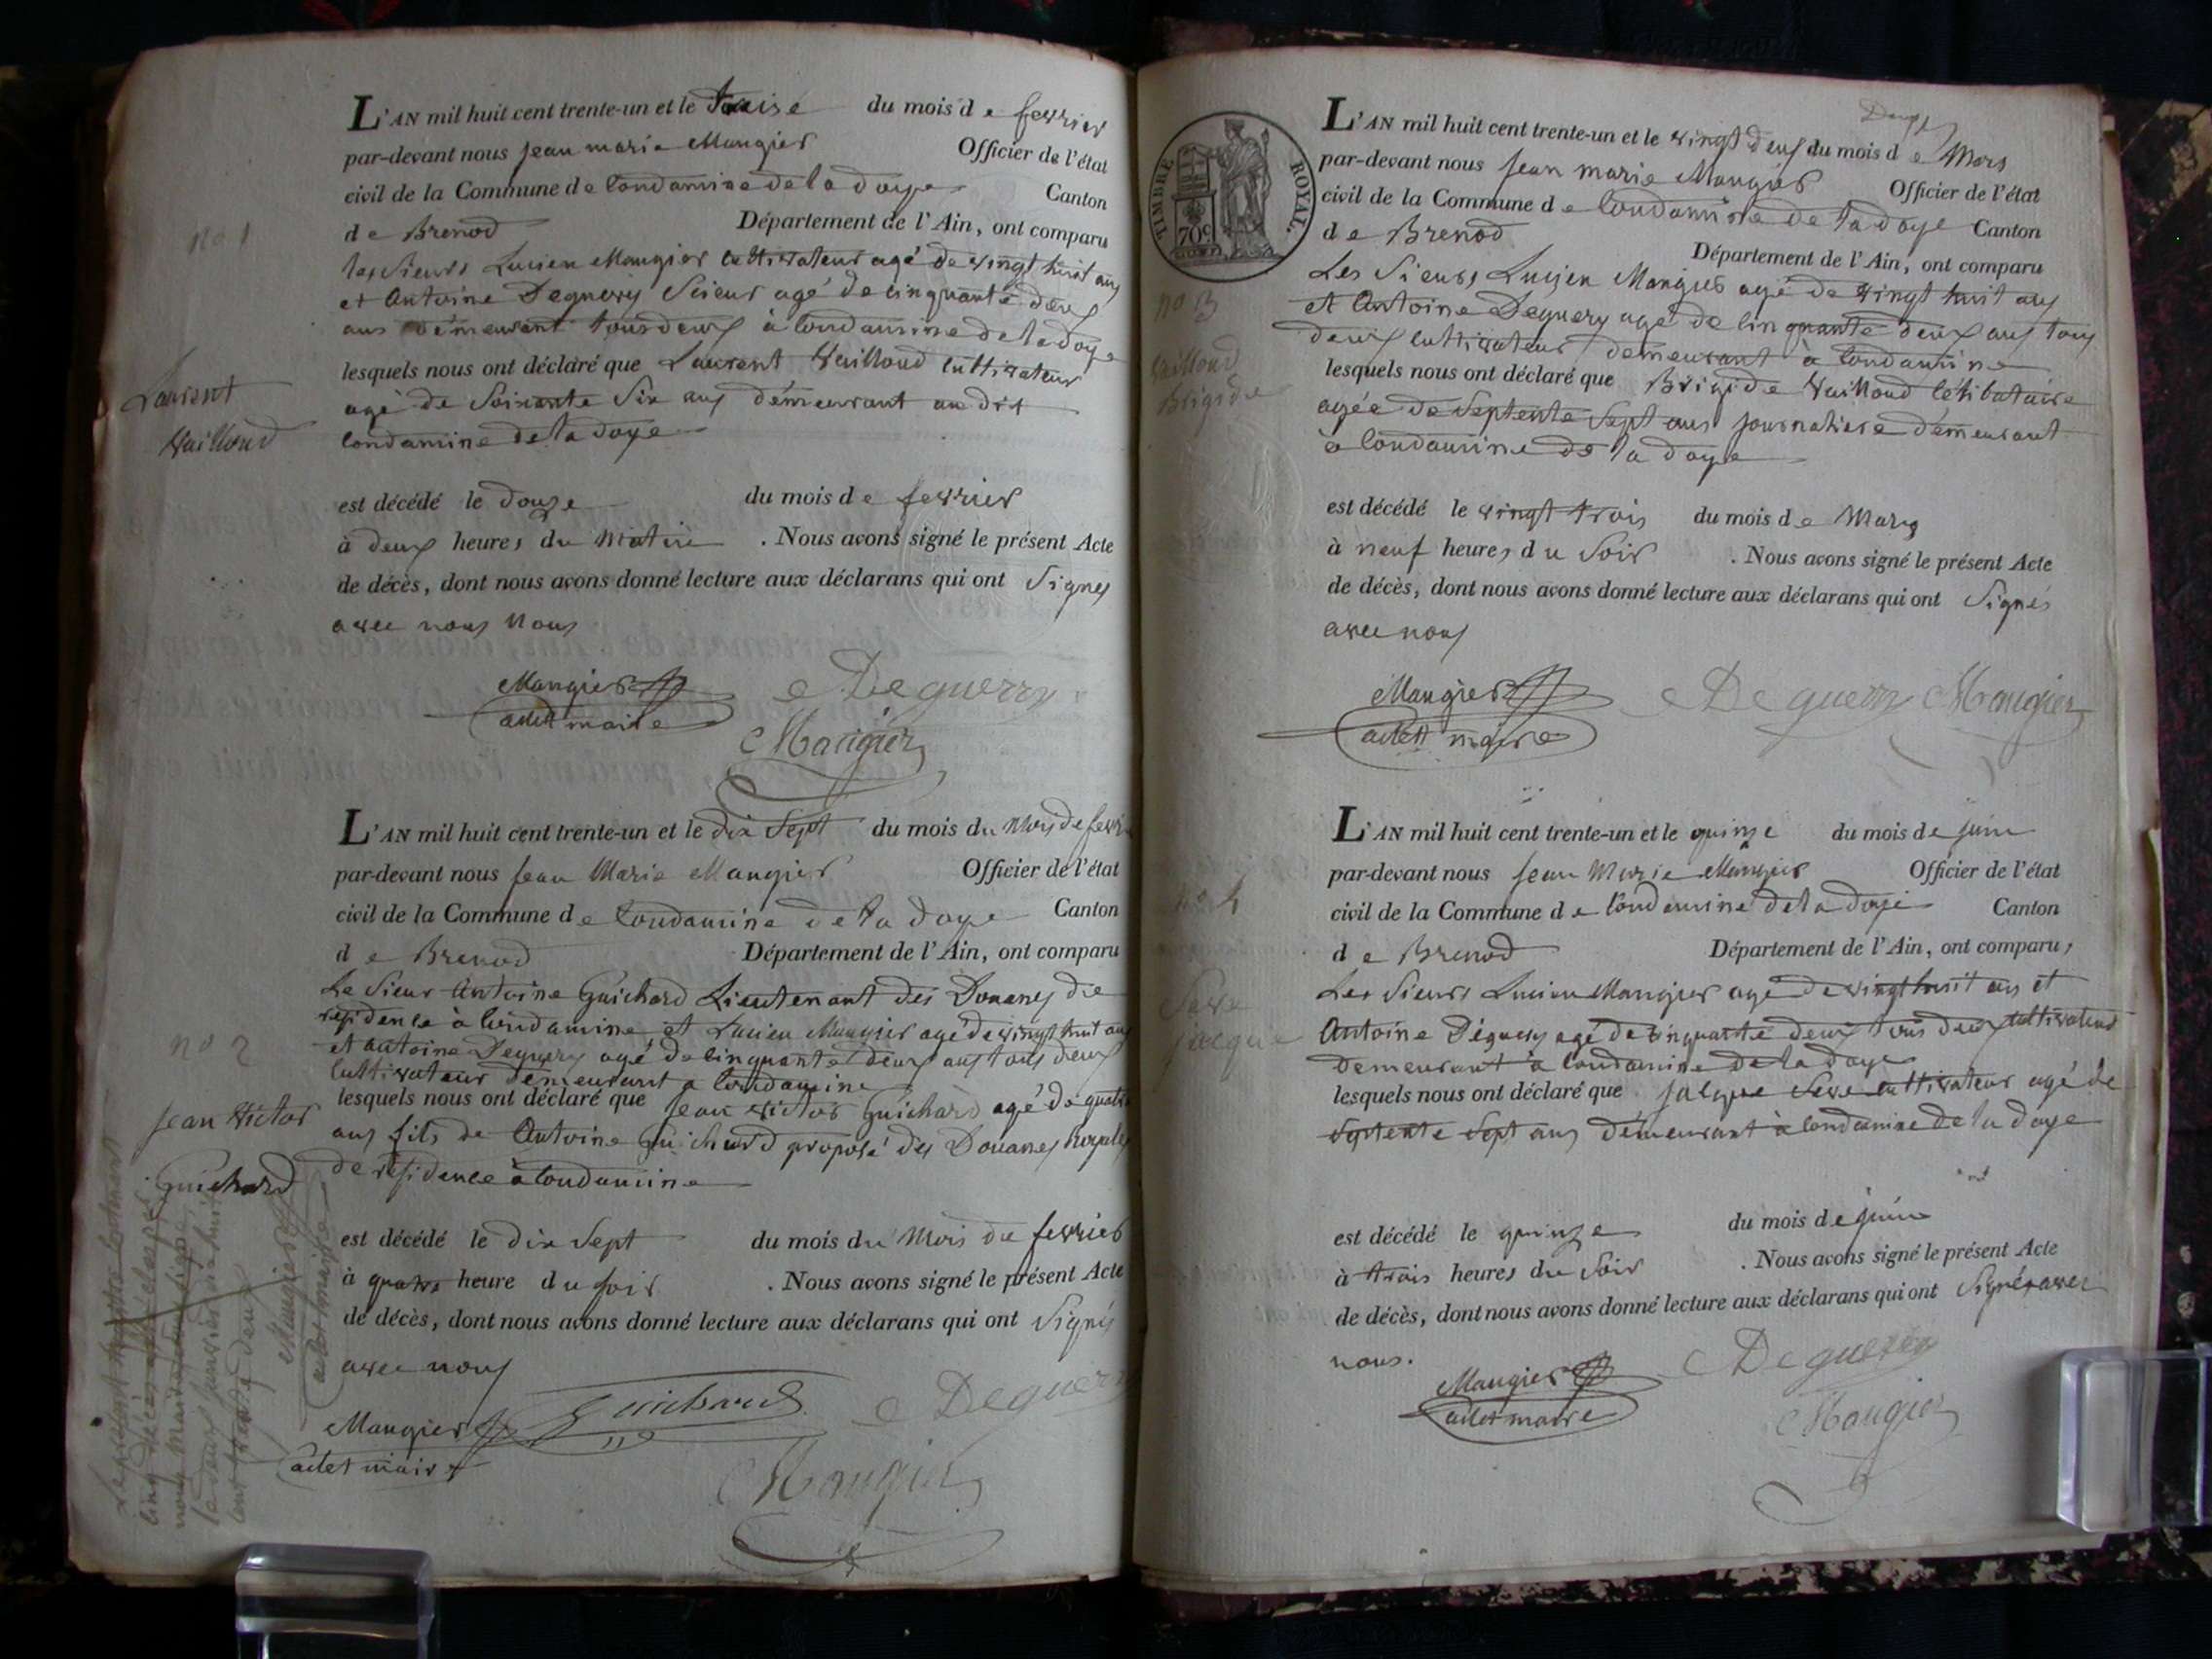 L'AN mil huit cent trente-un et le treise du mois de fevrier
par-devant nous jean marie Maugier Officier de l'état
civil de la Commune de Condamine de la doye Canton
de Brenod Département de l'Ain, ont comparu
les Sieurs Lucien Maugier cultivateur agé de vingt huit ans
et Antoine Deguery Scieur agé de cinquante deux
ans démeurant tous deux à Condamine de la doye
lesquels nous ont déclaré que Laurent Vailloud cultivateur
agé de Soixante Six ans démeurant au dit
Condamine de la doye
est décédé le douze du mois de fevrier
à deux heures du Matin . Nous avons signé le présent Acte
de décès, dont nous avons donné lecture aux déclarans qui ont Signés
avec nous Nous
Maugier Deguerry
adet maire
Maugier
no 1
Laurent
Vailloud
L'AN mil huit cent trente-un et le dix Sept du mois du Mois de fevri
par-devant nous jean Marie Maugier Officier de l'état
civil de la Commune de Condamine de la doye Canton
de Brenod Département de l'Ain, ont comparu
Le Sieur Antoine Guichard Lieutenant des Douanes de
residence à Condamine et Lucien Maugier agé de vingt huit ans
et Antoine Deguery agé de cinquante deux ans tous deux
Cultivateur démeurant a Condamine
lesquels nous ont déclaré que jean victor Guichard agé de quatre
ans fils de Antoine Guichard proposé des Douanes Royales
de residence à Condamine
est décédé le dix Sept du mois du Mois de fevrier
à quatre heure du soir . Nous avons signé le présent Acte
de décès, dont nous avons donné lecture aux déclarans qui ont Signés
avec nous
Maugier Guichard Deguerry
adet maire
Maugier
no 2
jean Victor
Guichard
Le présent registre contenant
cinq
nous maire
le deux janvier mil huit
cent trente deux
Maugier
adet maire
TIMBRE ROYAL.
70c
Douze
L'AN mil huit cent trente-un et le vingt deux du mois de Mars
par-devant nous jean marie Maugier Officier de l'état
civil de la Commune de Condamine de la doye Canton
de Brenod Département de l'Ain, ont comparu
Les Sieurs Lucien Maugier agé de vingt huit ans
et Antoine Deguery agé de cinquante deux ans tous
deux cultivateur démeurant à Condamine
lesquels nous ont déclaré que Brigide Vailloud célibataire
agée de Septente Sept ans journaliere démeurant
à Condamine de la doye
est décédé le vingt trois du mois de Mars
à neuf heures du Soir . Nous avons signé le présent Acte
de décès, dont nous avons donné lecture aux déclarans qui ont Signés
avec nous
Maugier Deguerry Maugier
adett maire
no 3
Vailloud
Brigide
L'AN mil huit cent trente-un et le quinze du mois de juin
par-devant nous jean Marie Maugier Officier de l'état
civil de la Commune de Condamine de la doye Canton
de Brenod Département de l'Ain, ont comparu,
Les Sieurs Lucien Maugier agé de vingt huit ans et
Antoine Déguery agé de cinquante deux tous deux cultivateur
Demeurant à Condamine de la doye
lesquels nous ont déclaré que jacque Seve cultivateur agé de
Septente Sept ans démeurant à Condamine de la doye
est décédé le quinze du mois de juin
à trois heures du Soir . Nous avons signé le présent Acte
de décès, dont nous avons donné lecture aux déclarans qui ont Signés avec
nous.
Maugier Deguerry
adet maire Maugier
no 4
Seve
jacque